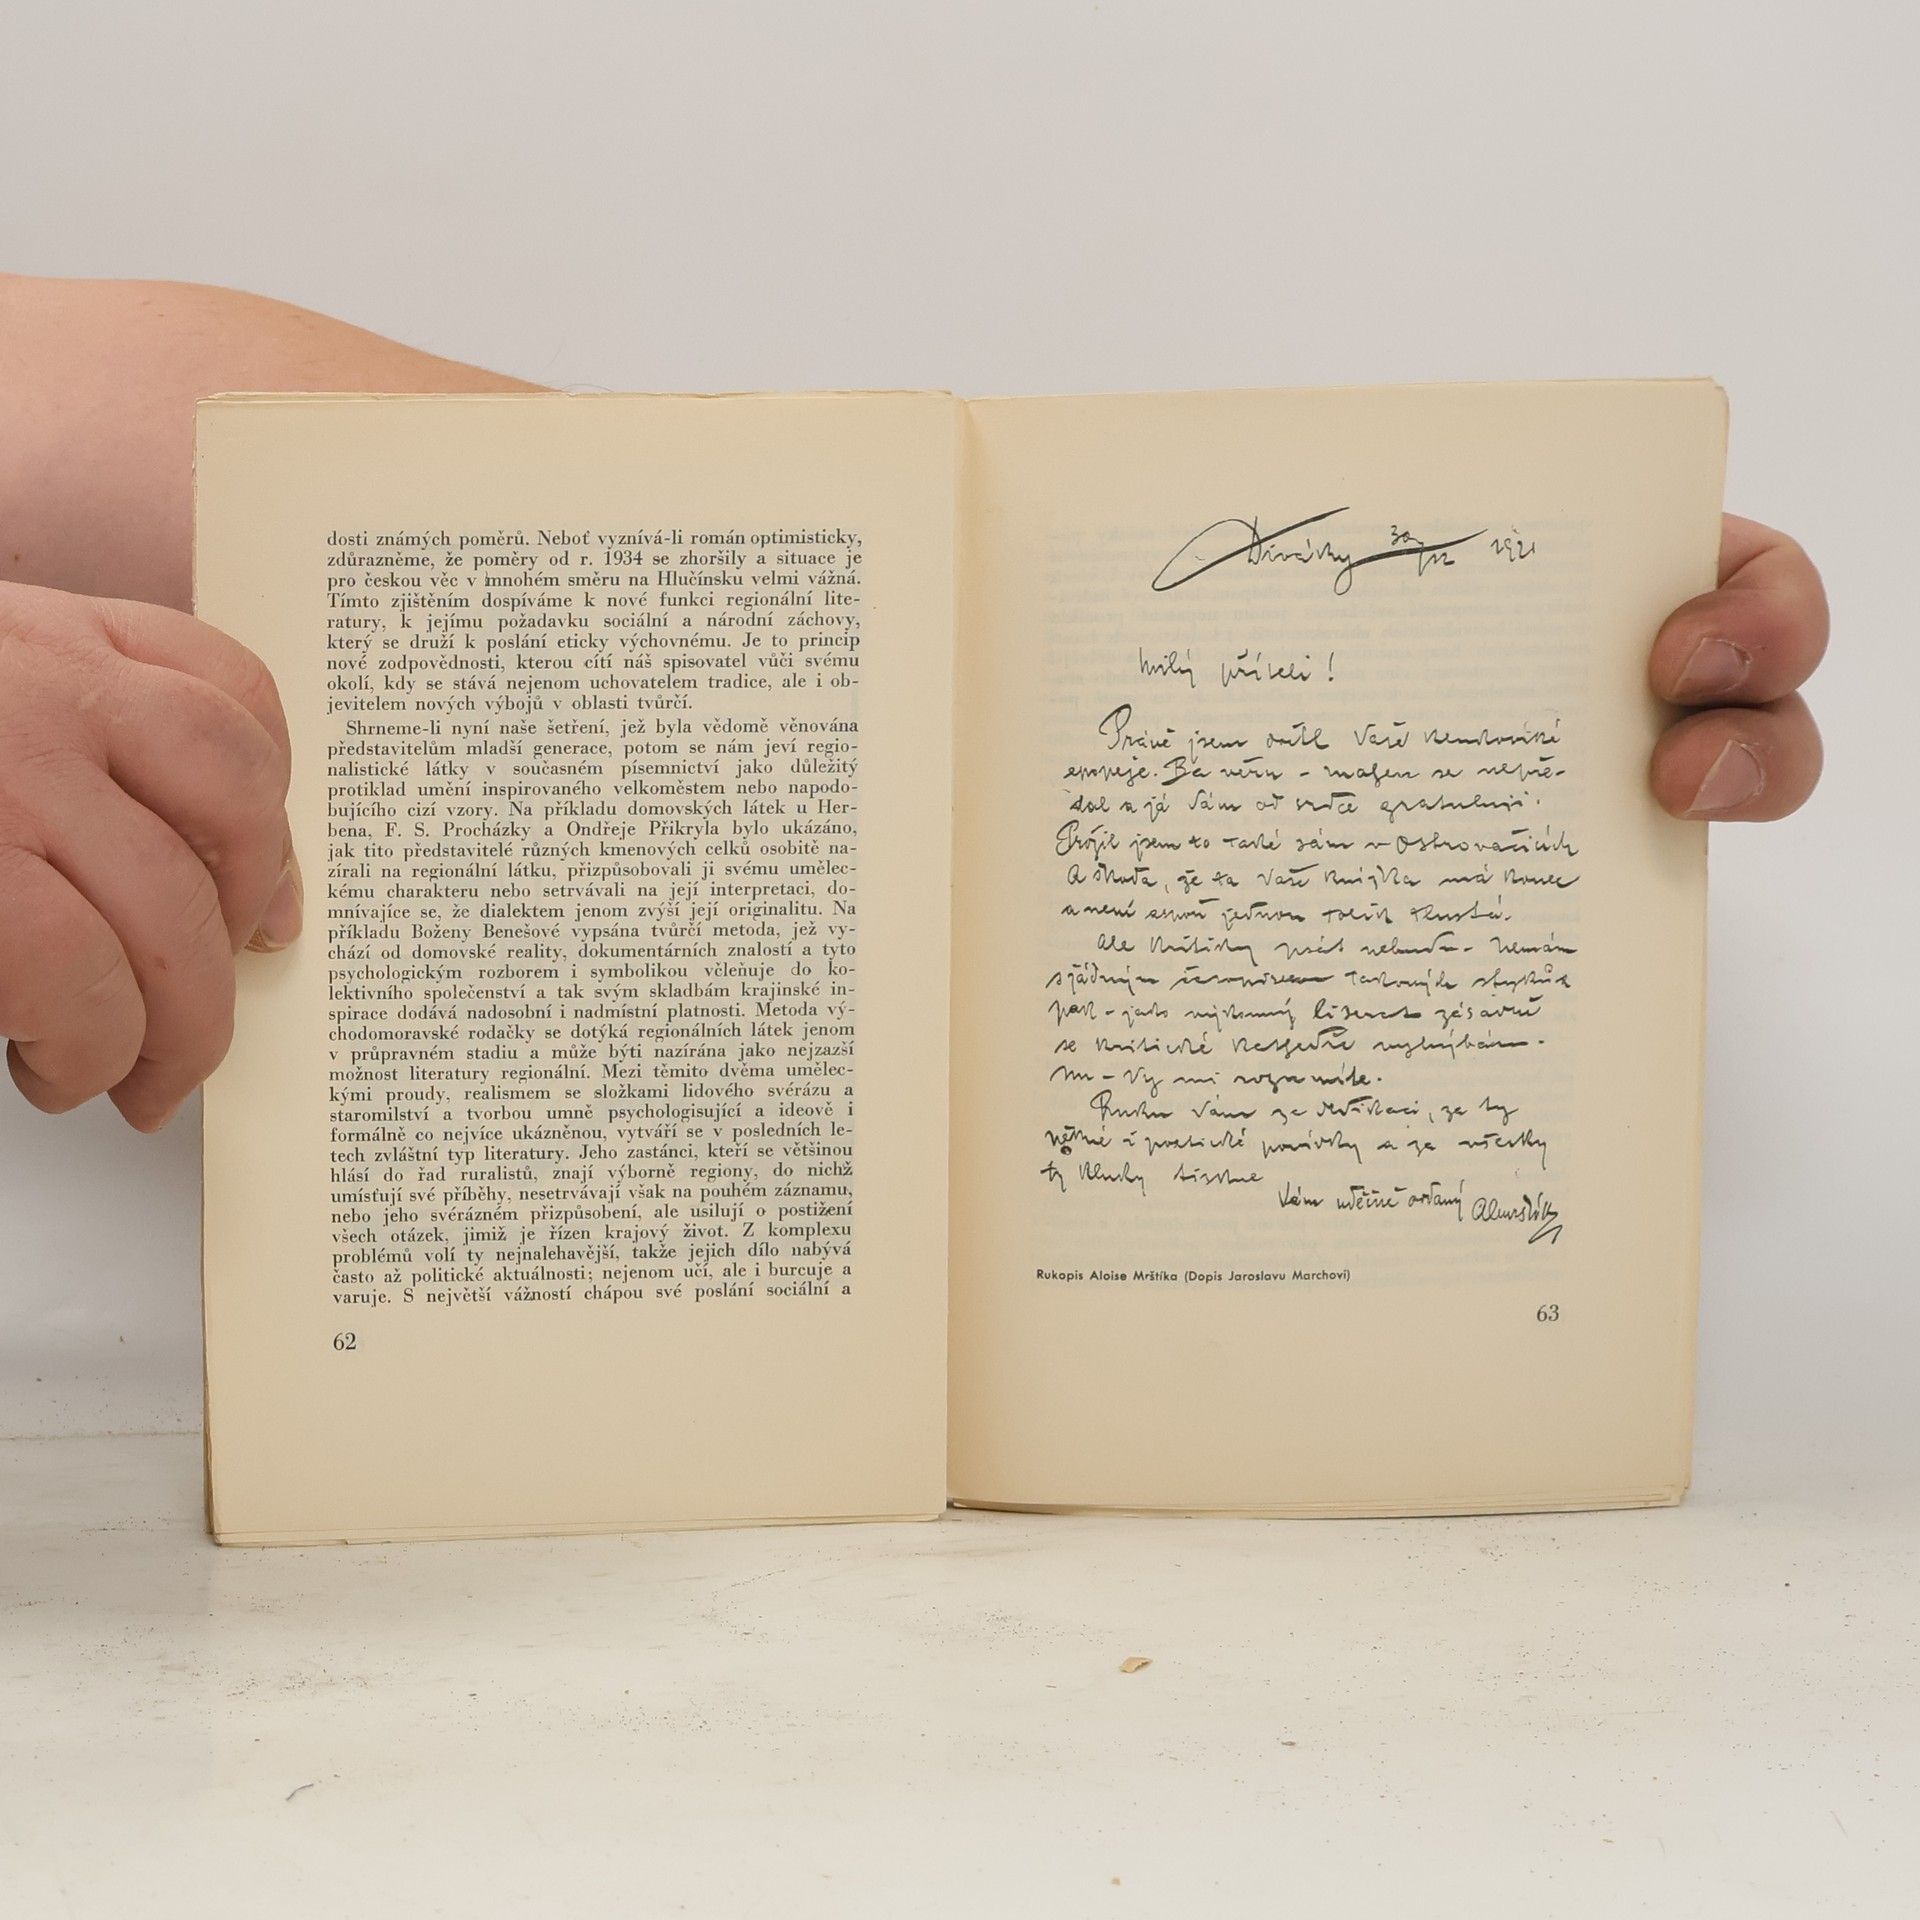 dosti známých poměrů. Neboť vyznívá-li román optimisticky,
zdůrazněme, že poměry od r. 1934 se zhoršily a situace je
pro českou věc v mnohém směru na Hlučínsku velmi vážná.
Tímto zjištěním dospíváme k nové funkci regionální lite-
ratury, k jejímu požadavku sociální a národní záchovy,
který se druží k poslání eticky výchovnému. Je to princip
nové zodpovědnosti, kterou cítí náš spisovatel vůči svému
okolí, kdy se stává nejenom uchovatelem tradice, ale i ob-
jevitelem nových výbojů v oblasti tvůrčí.
Shrneme-li nyní naše šetření, jež byla vědomě věnována
představitelům mladší generace, potom se nám jeví regio-
nalistické látky v současném písemnictví jako důležitý
protiklad umění inspirovaného velkoměstem nebo napodo-
bujícího cizí vzory. Na příkladu domovských látek u Her-
bena, F. S. Procházky a Ondřeje Přikryla bylo ukázáno,
jak tito představitelé různých kmenových celků osobitě na-
zírali na regionální látku, přizpůsobovali ji svému umělec-
kému charakteru nebo setrvávali na její interpretaci, do-
mnívajíce se, že dialektem jenom zvýší její originalitu. Na
příkladu Boženy Benešové vypsána tvůrčí metoda, jež vy-
chází od domovské reality, dokumentárních znalostí a tyto
psychologickým rozborem i symbolikou včleňuje do ko-
lektivního společenství a tak svým skladbám krajinské in-
spirace dodává nadosobní i nadmístní platnosti. Metoda vý-
chodomoravské rodačky se dotýká regionálních látek jenom
v průpravném stadiu a může býti nazírána jako nejzazší
možnost literatury regionální. Mezi těmito dvěma umělec-
kými proudy, realismem se složkami lidového svérázu a
staromilství a tvorbou umně psychologisující a ideově i
formálně co nejvíce ukázněnou, vytváří se v posledních le-
tech zvláštní typ literatury. Jeho zastánci, kteří se většinou
hlásí do řad ruralistů, znají výborně regiony, do nichž
umísťují své příběhy, nesetrvávají však na pouhém záznamu,
nebo jeho svérázném přizpůsobení, ale usilují o postižení
všech otázek, jimiž je řízen krajový život. Z komplexu
problémů volí ty nejnalehavější, takže jejich dílo nabývá
často až politické aktuálnosti; nejenom učí, ale i burcuje a
varuje. S největší vážností chápou své poslání sociální a
62
Diváky 30/12 1921
Milý příteli!
Právě jsem dočtl Vaše
epopeje. Ba věru - se nepře-
dal a já Vám od srdce gratuluji.
Prožil jsem to také sám v Ostrovačicích
A škoda, že ta Vaše knížka má konec
a není aspoň jednou tolik tlustá.
Ale kritiky psát nebudu - nemám
s žádným časopisem takových styků a
pak - jako výkonný literát zásadně
se kritické katedře vyhýbám.
Nu - Vy mi rozumíte.
Ruku Vám za dedikaci, za ty
něžné i poetické povídky a za všecky
ty kluky tisknu
Vám vděčně oddaný AlMrštík
Rukopis Aloise Mrštíka (Dopis Jaroslavu Marchovi)
63